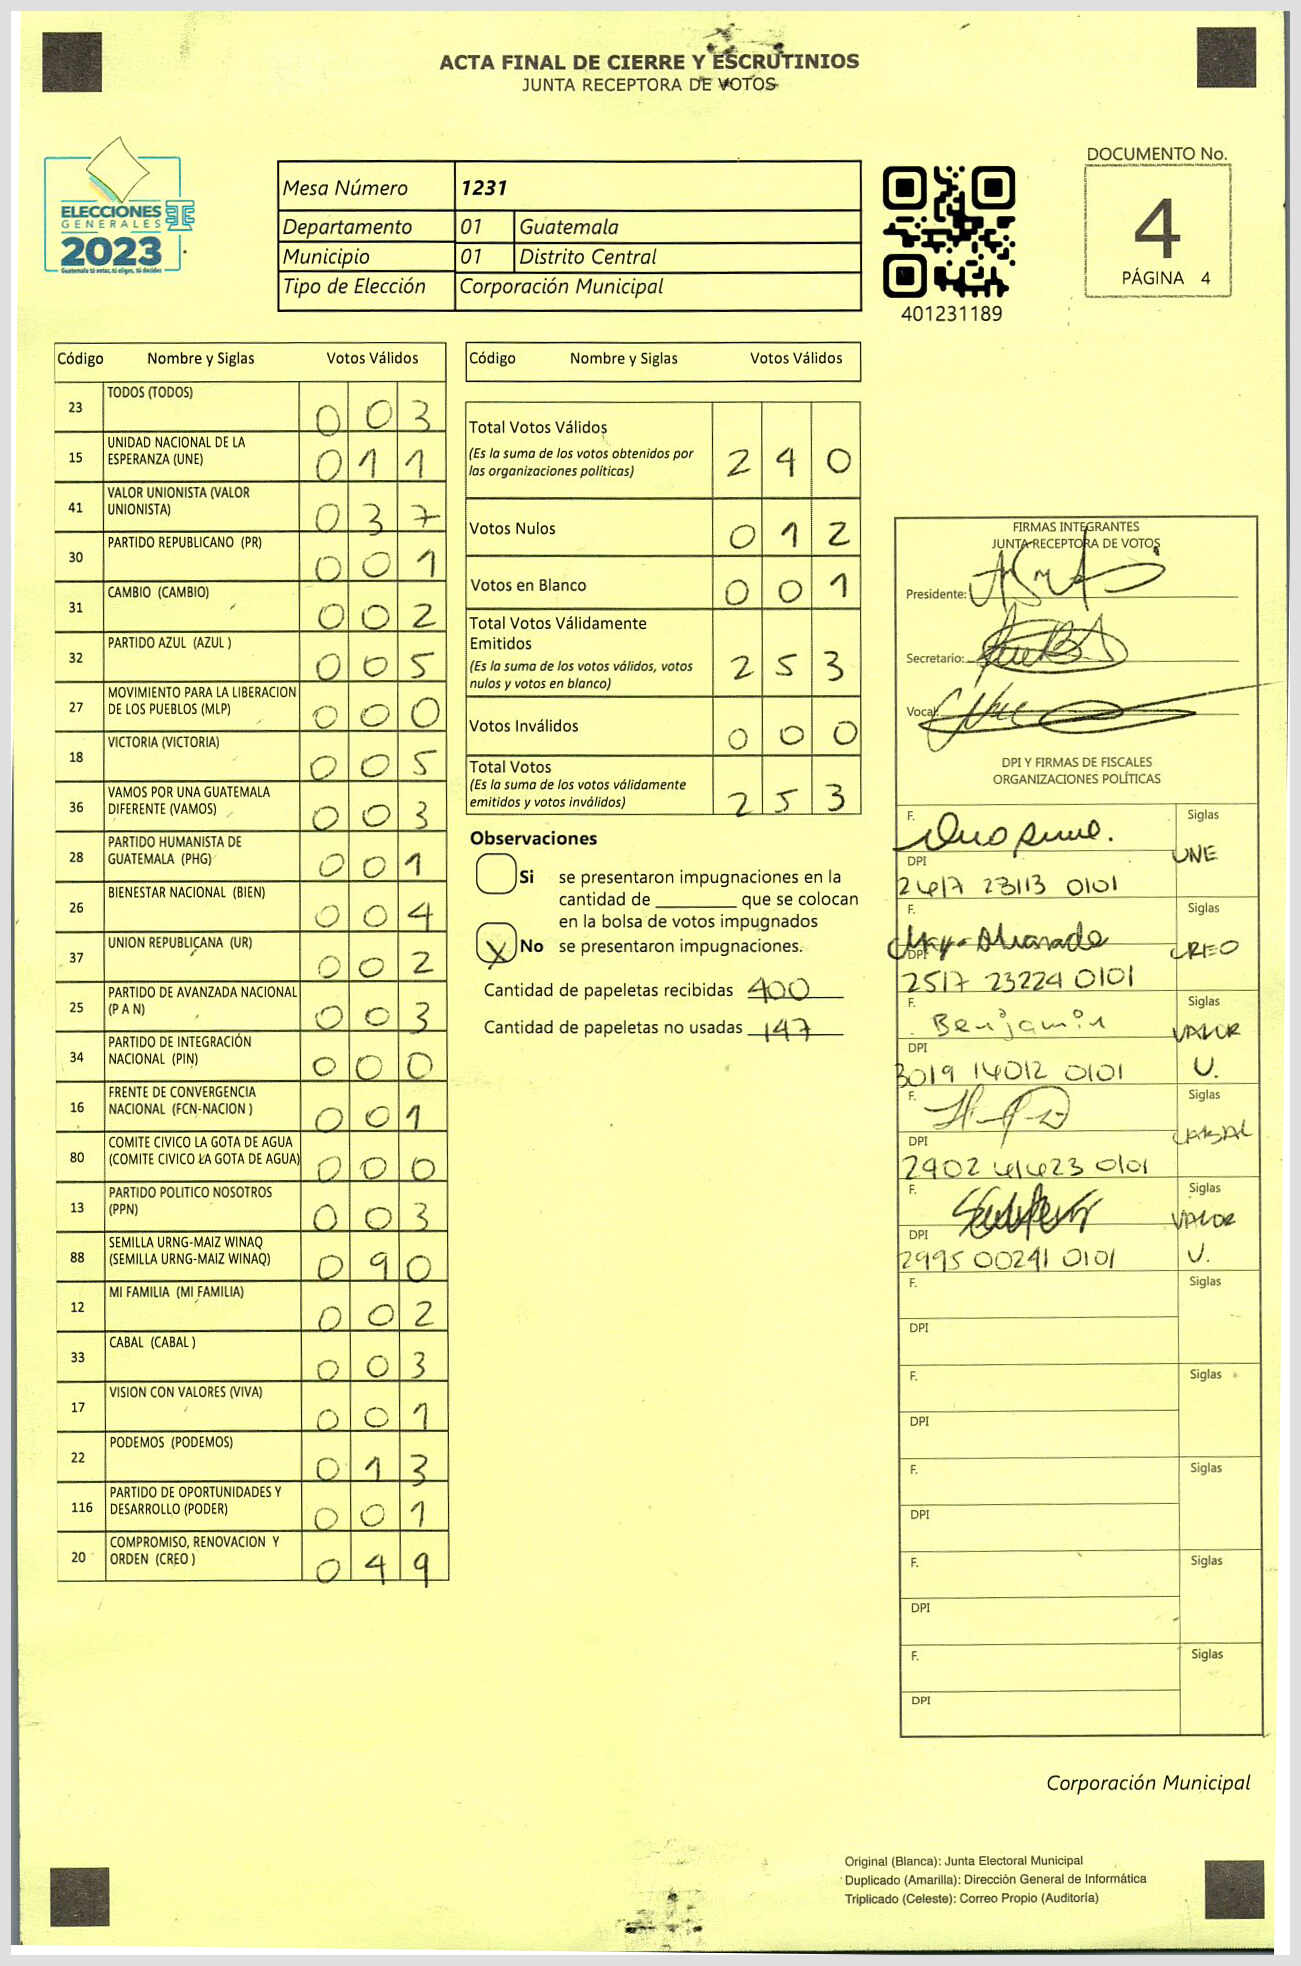 ACTA FINAL DE CIERRE Y ESCRUTINIOS
JUNTA RECEPTORA DE VOTOS
ELECCIONES
GENERALES
2023
Guatemala tú votas, tú eliges, tú decides
Mesa Número 1231
Departamento 01 Guatemala
Municipio 01 Distrito Central
Tipo de Elección Corporación Municipal
401231189
DOCUMENTO No.
4
PÁGINA 4
Código Nombre y Siglas Votos Válidos
23 TODOS (TODOS) 0 0 3
15 UNIDAD NACIONAL DE LA
ESPERANZA (UNE) 0 1 1
41 VALOR UNIONISTA (VALOR
UNIONISTA) 0 3 7
30 PARTIDO REPUBLICANO (PR) 0 0 1
31 CAMBIO (CAMBIO) 0 0 2
32 PARTIDO AZUL (AZUL ) 0 0 5
27 MOVIMIENTO PARA LA LIBERACION
DE LOS PUEBLOS (MLP) 0 0 0
18 VICTORIA (VICTORIA) 0 0 5
36 VAMOS POR UNA GUATEMALA
DIFERENTE (VAMOS) 0 0 3
28 PARTIDO HUMANISTA DE
GUATEMALA (PHG) 0 0 1
26 BIENESTAR NACIONAL (BIEN) 0 0 4
37 UNION REPUBLICANA (UR) 0 0 2
25 PARTIDO DE AVANZADA NACIONAL
(P A N) 0 0 3
34 PARTIDO DE INTEGRACIÓN
NACIONAL (PIN) 0 0 0
16 FRENTE DE CONVERGENCIA
NACIONAL (FCN-NACION ) 0 0 1
80 COMITE CIVICO LA GOTA DE AGUA
(COMITE CIVICO LA GOTA DE AGUA) 0 0 0
13 PARTIDO POLITICO NOSOTROS
(PPN) 0 0 3
88 SEMILLA URNG-MAIZ WINAQ
(SEMILLA URNG-MAIZ WINAQ) 0 9 0
12 MI FAMILIA (MI FAMILIA) 0 0 2
33 CABAL (CABAL ) 0 0 3
17 VISION CON VALORES (VIVA) 0 0 1
22 PODEMOS (PODEMOS) 0 1 3
116 PARTIDO DE OPORTUNIDADES Y
DESARROLLO (PODER) 0 0 1
20 COMPROMISO, RENOVACION Y
ORDEN (CREO ) 0 4 9
Código Nombre y Siglas Votos Válidos
Total Votos Válidos
(Es la suma de los votos obtenidos por
las organizaciones políticas) 2 4 0
Votos Nulos 0 1 2
Votos en Blanco 0 0 1
Total Votos Válidamente
Emitidos
(Es la suma de los votos válidos, votos
nulos y votos en blanco) 2 5 3
Votos Inválidos 0 0 0
Total Votos
(Es la suma de los votos válidamente
emitidos y votos inválidos) 2 5 3
Observaciones
Si se presentaron impugnaciones en la
cantidad de ________ que se colocan
en la bolsa de votos impugnados
X No se presentaron impugnaciones.
Cantidad de papeletas recibidas 400
Cantidad de papeletas no usadas 147
FIRMAS INTEGRANTES
JUNTA RECEPTORA DE VOTOS
Presidente:
Secretario:
Vocal:
DPI Y FIRMAS DE FISCALES
ORGANIZACIONES POLÍTICAS
F. Siglas
UNE
DPI
2417 23113 0101
F. Siglas
Alvarado CREO
DPI
2517 23224 0101
F. Siglas
Benjamin VALOR
DPI U.
3019 14012 0101
F. Siglas
CABAL
DPI
2902 41423 0101
F. Siglas
VALOR
DPI U.
2995 00241 0101
F. Siglas
DPI
F. Siglas
DPI
F. Siglas
DPI
F. Siglas
DPI
F. Siglas
DPI
Corporación Municipal
Original (Blanca): Junta Electoral Municipal
Duplicado (Amarilla): Dirección General de Informática
Triplicado (Celeste): Correo Propio (Auditoría)